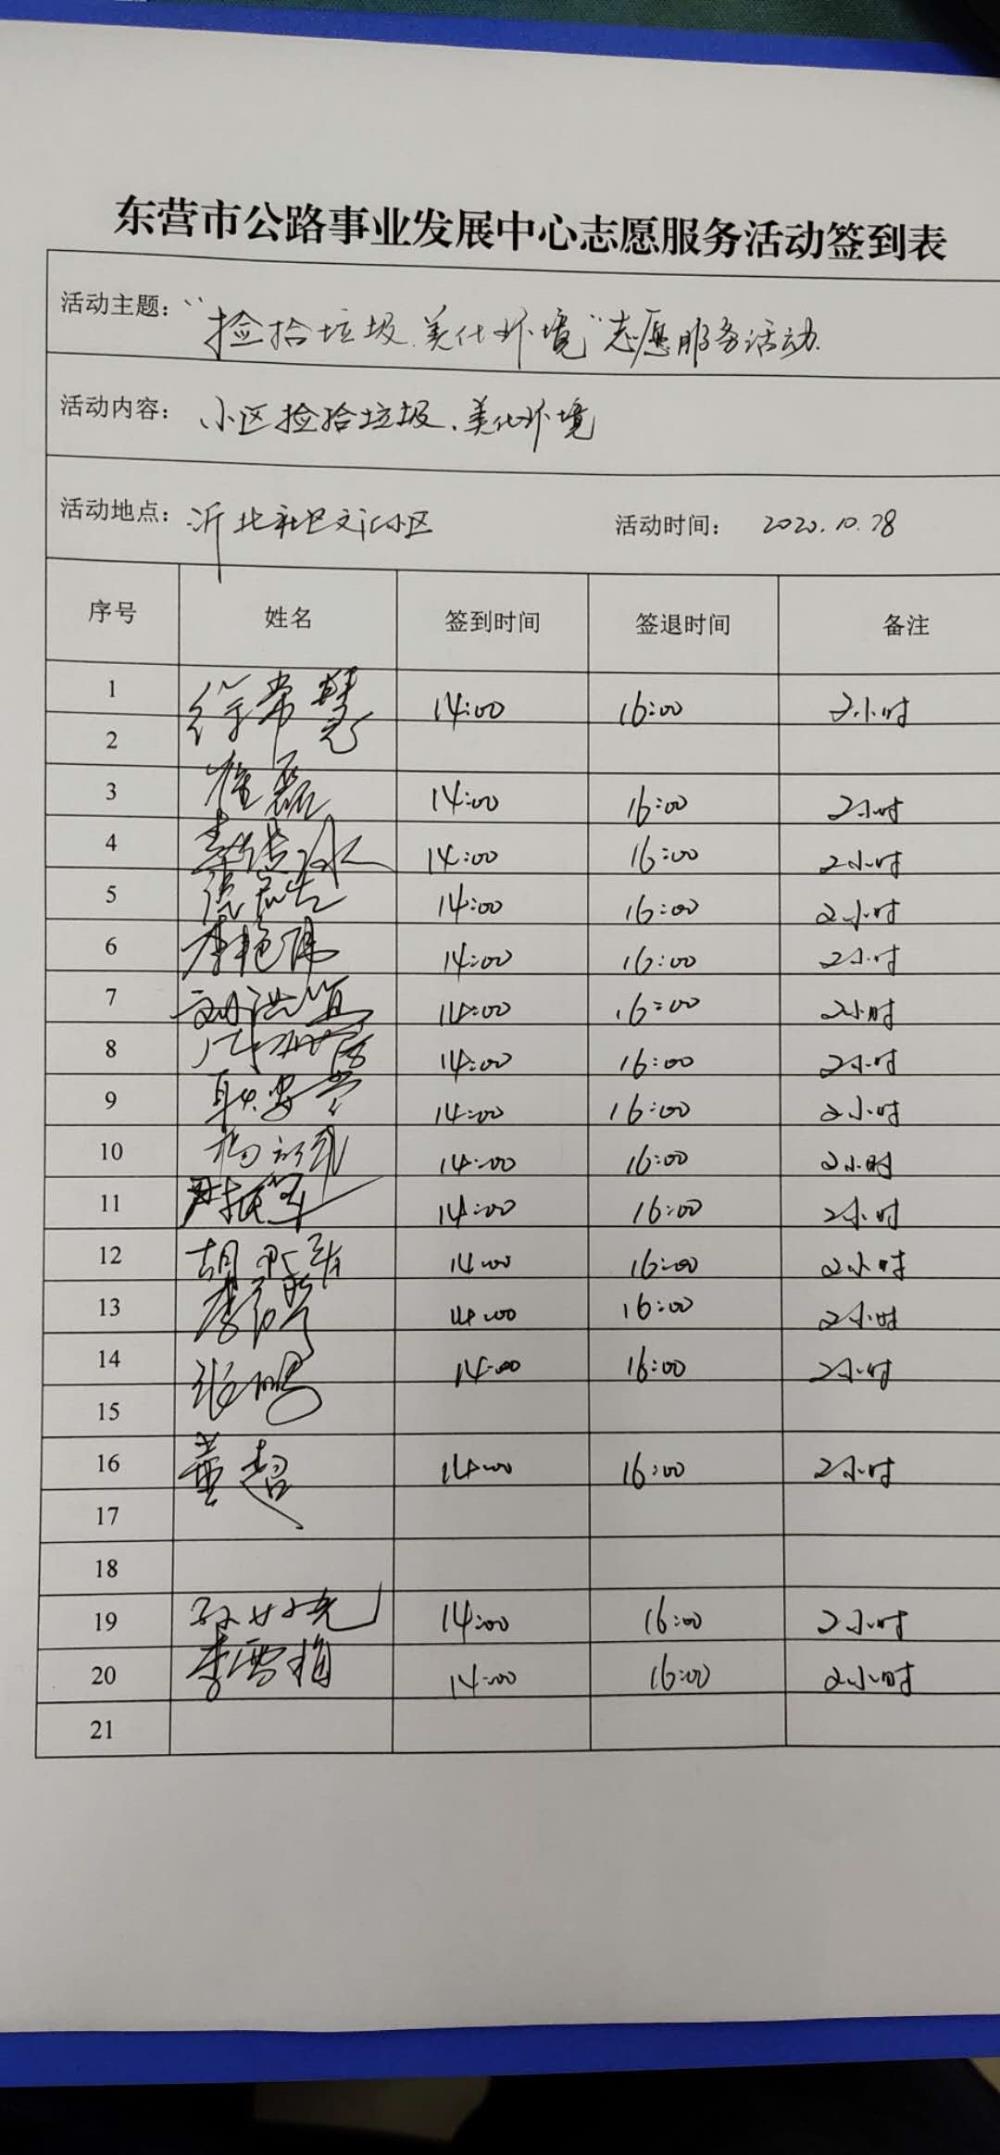 东营市公路事业发展中心志愿服务活动签到表
活动主题：“捡拾垃圾、美化环境”志愿服务活动.
活动内容：小区捡拾垃圾、美化环境
活动地点：沂北社区文汇小区 活动时间：2020.10.28
序号 姓名 签到时间 签退时间 备注
1 徐常慧 14:00 16:00 2小时
2
3 崔磊 14:00 16:00 2小时
4 14:00 16:00 2小时
5 14:00 16:00 2小时
6 李艳 14:00 16:00 2小时
7 刘洪 14:00 16:00 2小时
8 14:00 16:00 2小时
9 耿 14:00 16:00 2小时
10 杨 14:00 16:00 2小时
11 尹振军 14:00 16:00 2小时
12 胡 14:00 16:00 2小时
13 李 14:00 16:00 2小时
14 张鹏 14:00 16:00 2小时
15
16 董超 14:00 16:00 2小时
17
18
19 孙 14:00 16:00 2小时
20 李雪梅 14:00 16:00 2小时
21